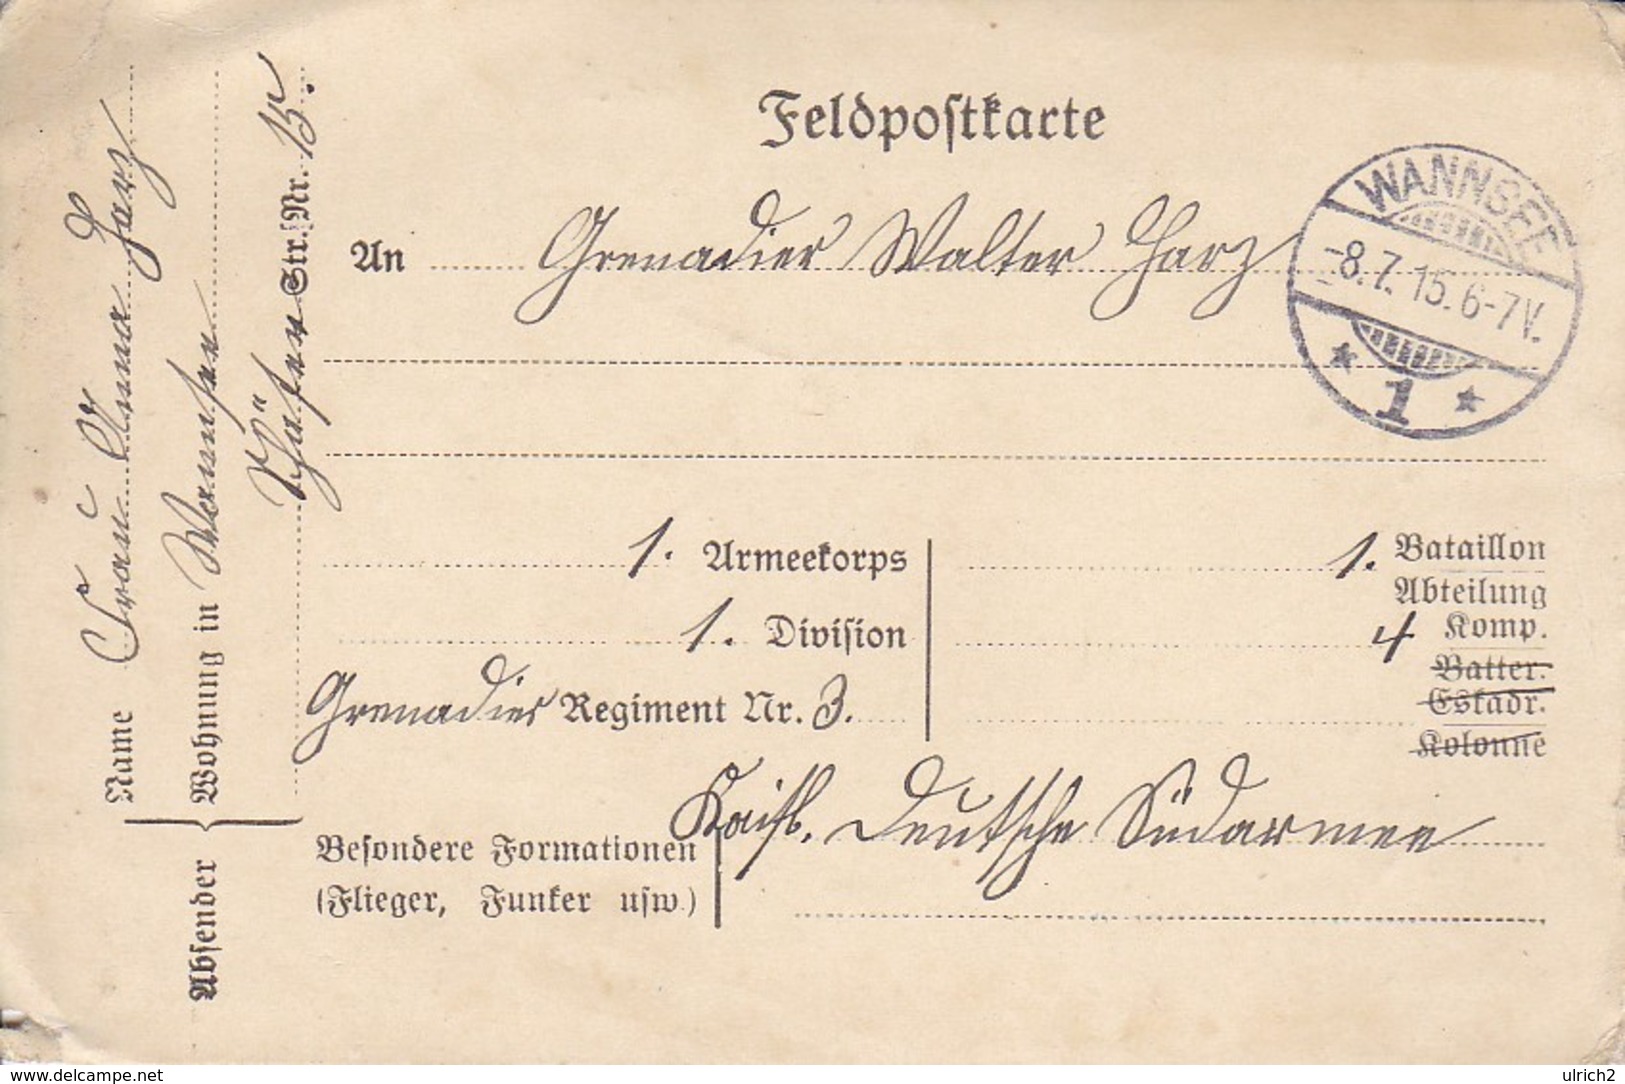 Feldpostkarte
An Grenadier Walter Harz
WANNSEE
-8.7.15.6-7V.
* 1 *
1. Armeekorps
1. Division
Grenadier Regiment Nr. 3.
1. Bataillon
Abteilung
4 Komp.
Batter.
Eskadr.
Kolonne
Besondere Formationen
(Flieger, Funker usw.)
Kaisl. Deutsche Südarmee
Absender
Name Frau Anna Harz
Wohnung in Wannsee
Str. Nr. 15.
www.delcampe.net
ulrich2